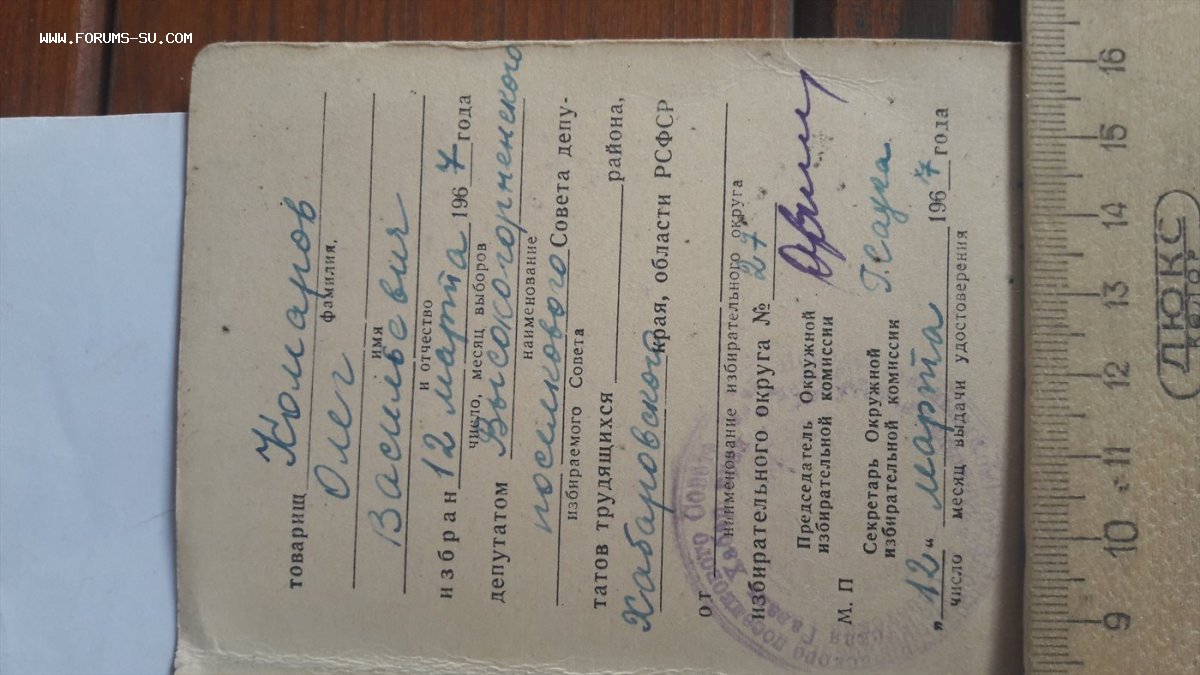 WWW.FORUMS-SU.COM
товарищ Комаров
фамилия,
Олег
имя
Васильевич
и отчество
избран 12 марта 1967 года
число, месяц выборов
депутатом Высокогорненского
наименование
поселкового Совета депу-
избираемого Совета
татов трудящихся района,
Хабаровского края, области РСФСР
от
наименование избирательного округа
избирательного округа № 27
Председатель Окружной
избирательной комиссии
М. П
Секретарь Окружной
избирательной комиссии
„12“ марта 1967 года
число месяц выдачи удостоверения
9 10 11 12 13 14 15 16
ЛЮКС